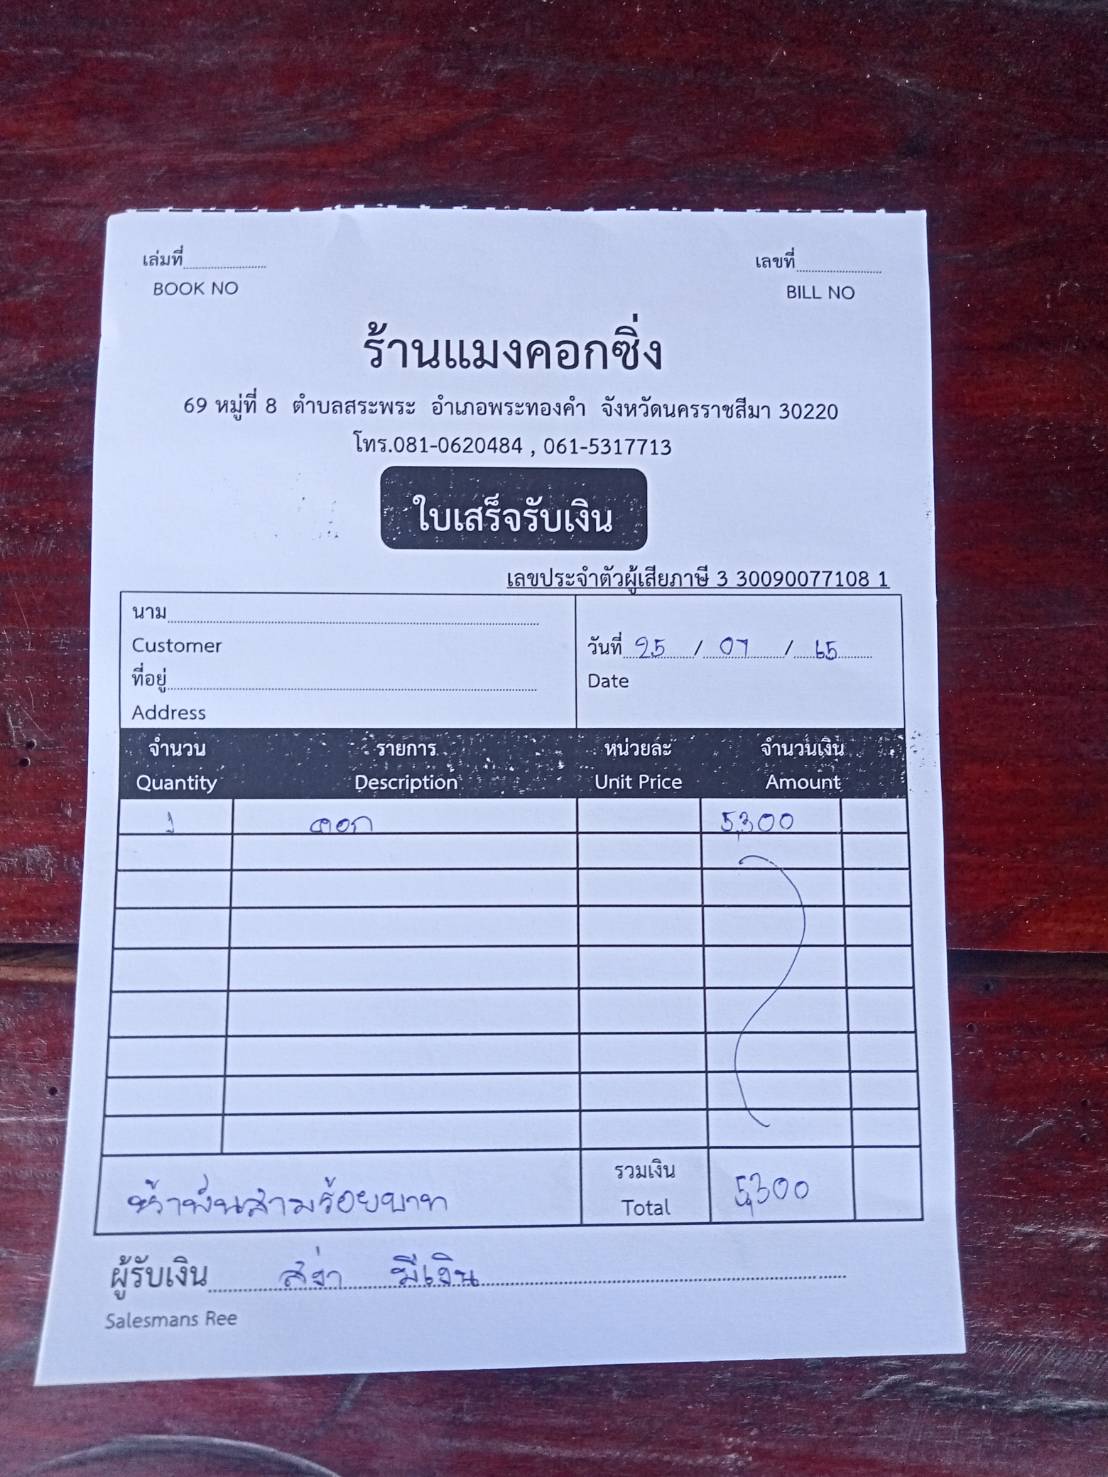 เล่มที่
เลขที่
BOOK NO
BILL NO
ร้านแมงคอกซิ่ง
69 หมู่ที่ 8 ตำบลสระพระ อำเภอพระทองคำ จังหวัดนครราชสีมา 30220
โทร.081-0620484 , 061-5317713
ใบเสร็จรับเงิน
เลขประจำตัวผู้เสียภาษี 3 30090077108 1
นาม
Customer
วันที่ 25 / 07 / 65
ที่อยู่
Date
Address
จำนวน รายการ หน่วยละ จำนวนเงิน
Quantity Description Unit Price Amount
1 คอก 5,300
รวมเงิน
ห้าพันสามร้อยบาท Total 5,300
ผู้รับเงิน สง่า มีเงิน
Salesmans Ree